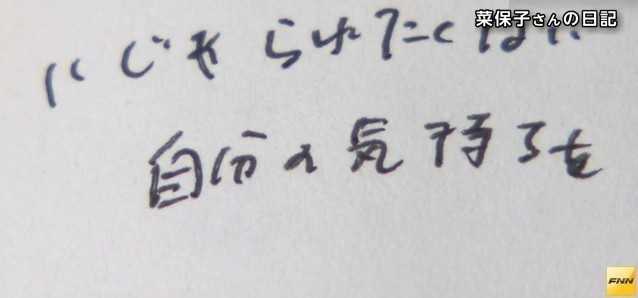 菜保子さんの日記
いじめられたくない
自分の気持ちを
FNN